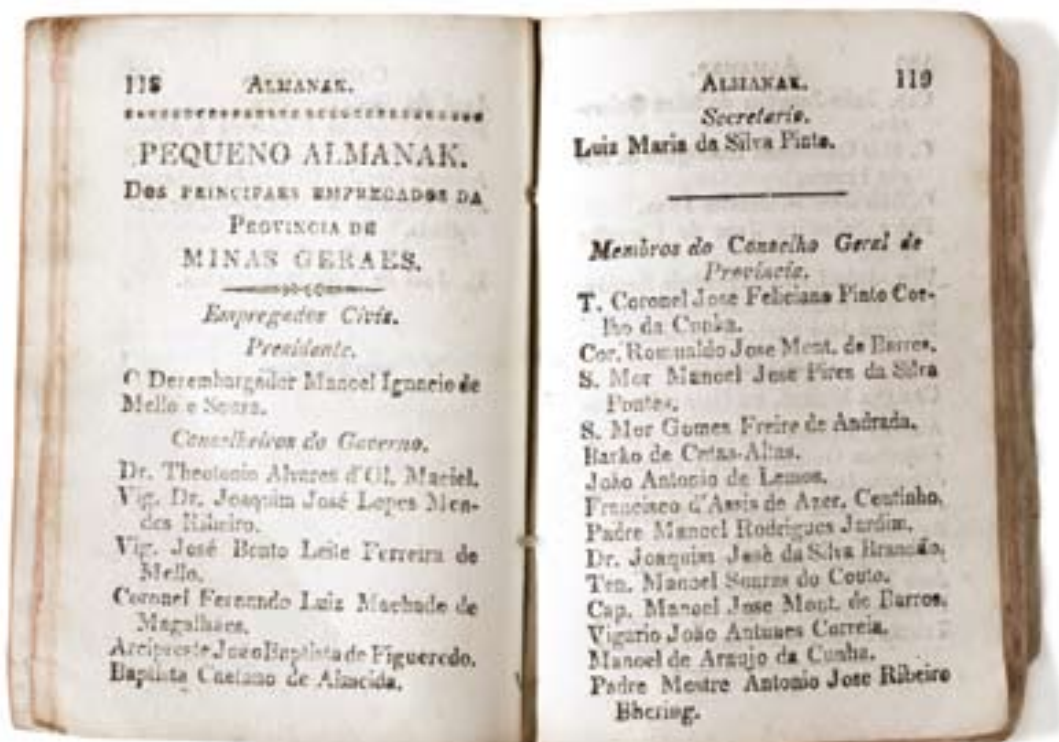 118 ALMANAK.
PEQUENO ALMANAK.
DOS PRINCIPAES EMPREGADOS DA
PROVINCIA DE
MINAS GERAES.
Empregados Civis.
Presidente.
O Desembargador Manoel Ignacio de
Mello e Souza.
Conselheiros do Governo.
Dr. Theotonio Alvares d'Ol. Maciel.
Vig. Dr. Joaquim José Lopes Men-
des Ribeiro.
Vig. José Bento Leite Ferreira de
Mello.
Coronel Fernando Luiz Machado de
Magalhaes.
Arcipreste João Baptista de Figueredo.
Baptista Caetano de Almeida.
ALMANAK. 119
Secretario.
Luiz Maria da Silva Pinto.
Membros do Conselho Geral de
Provincia.
T. Coronel Jose Feliciano Pinto Coe-
lho da Cunha.
Cor. Romualdo Jose Mont. de Barros.
S. Mor Manoel Jose Pires da Silva
Pontes.
S. Mor Gomes Freire de Andrada.
Barão de Catas-Altas.
João Antonio de Lemos.
Francisco d'Assis de Azer. Coutinho.
Padre Manoel Rodrigues Jardim.
Dr. Joaquim José da Silva Brandão.
Ten. Manoel Soares do Couto.
Cap. Manoel Jose Mont. de Barros.
Vigario João Antunes Correia.
Manoel de Araujo da Cunha.
Padre Mestre Antonio Jose Ribeiro
Bhering.